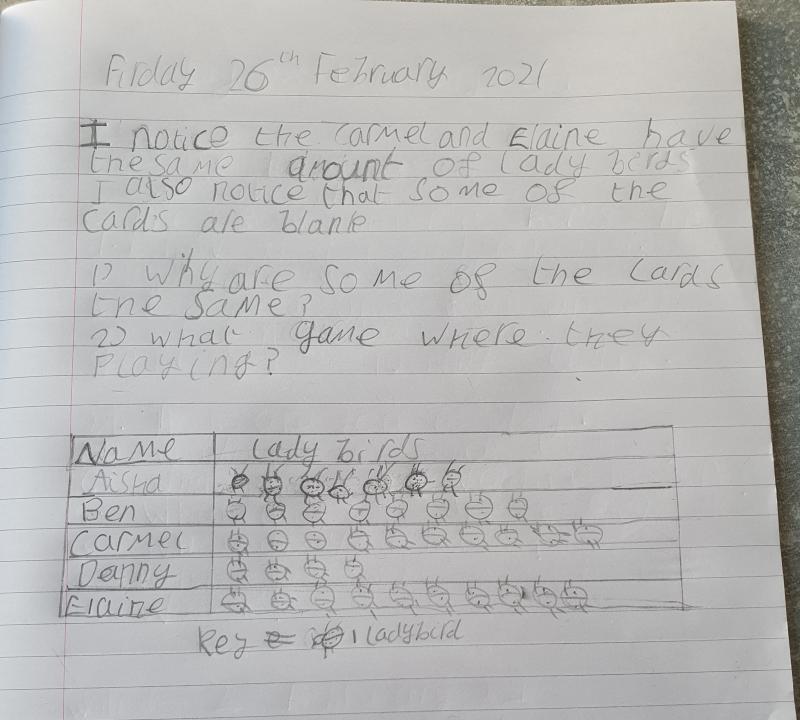 Firday 26th February 2021
I notice the Carmel and Elaine have
the same amount of lady birds
I also notice that some of the
cards are blank
1) Why are some of the cards
the same?
2) what game where they
Playing?
Name Lady birds
Aisha
Ben
Carmel
Danny
Elaine
Key = 1 ladybird